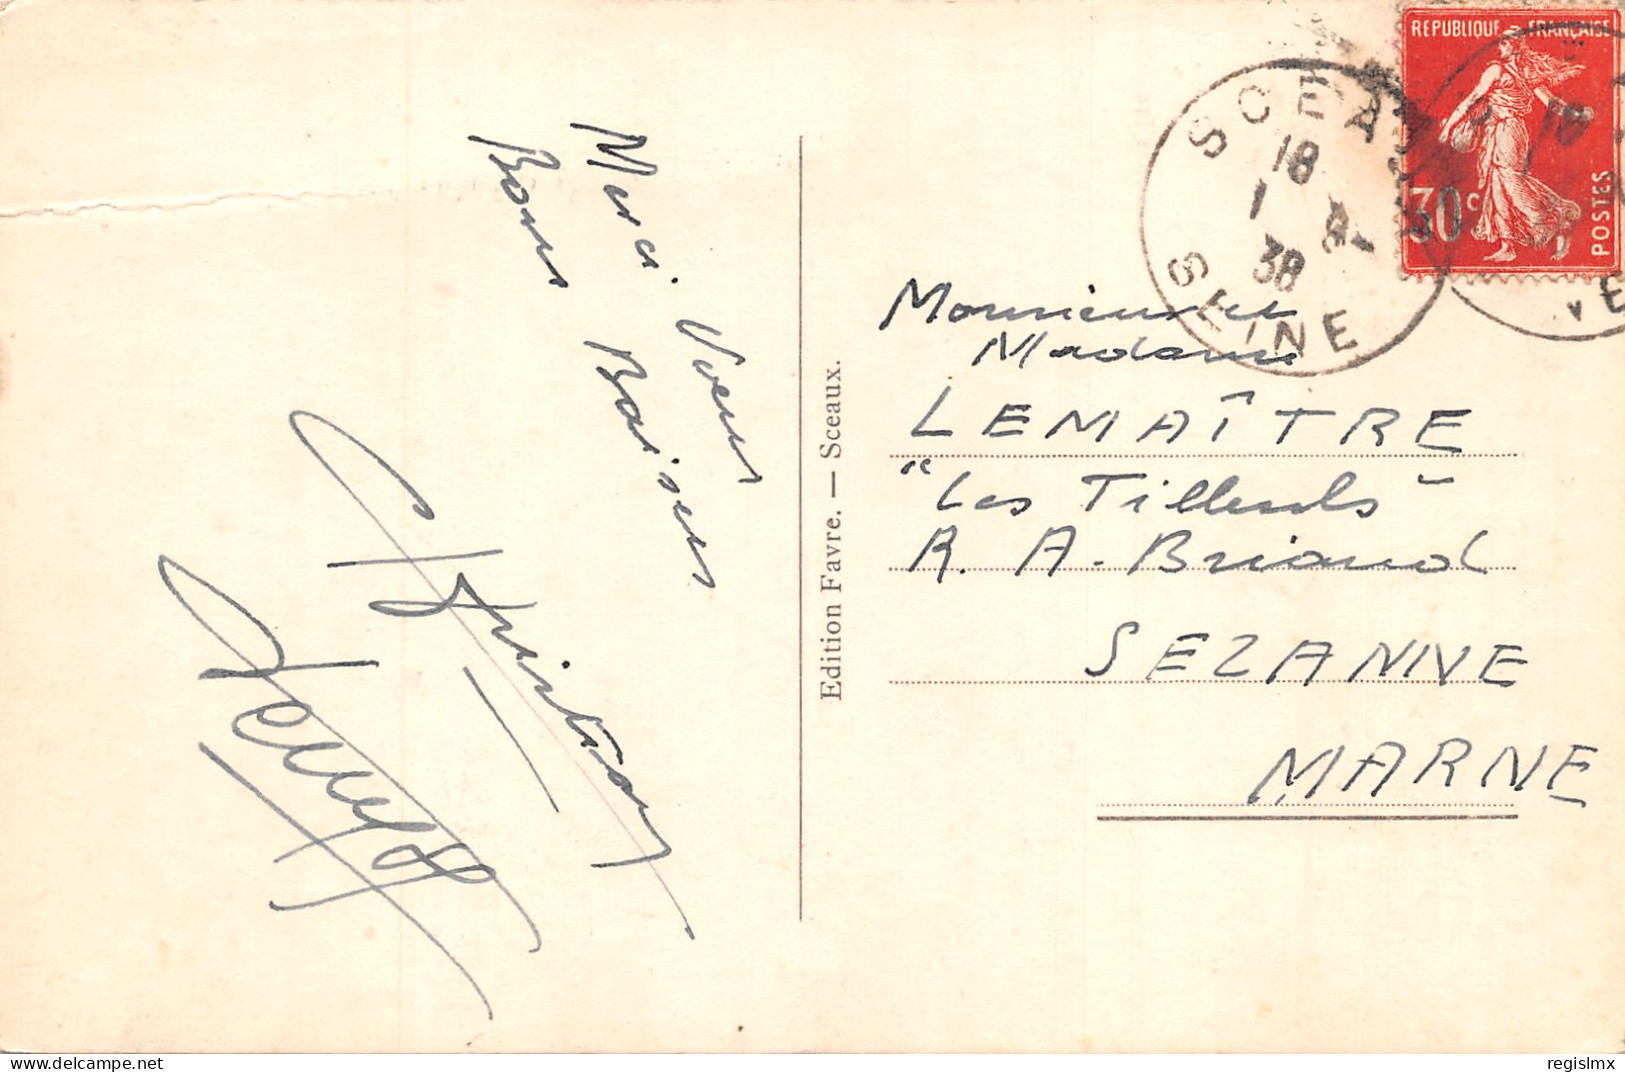 Merci. Voeux
Bons Baisers
Edition Favre. — Sceaux.
REPUBLIQUE FRANÇAISE
30c
POSTES
SCEAUX
18
1
38
SEINE
Monsieur et
Madame
LEMAÎTRE
"Les Tilleuls"
R. A. Briand
SEZANNE
MARNE
delcampe.net
regislmx